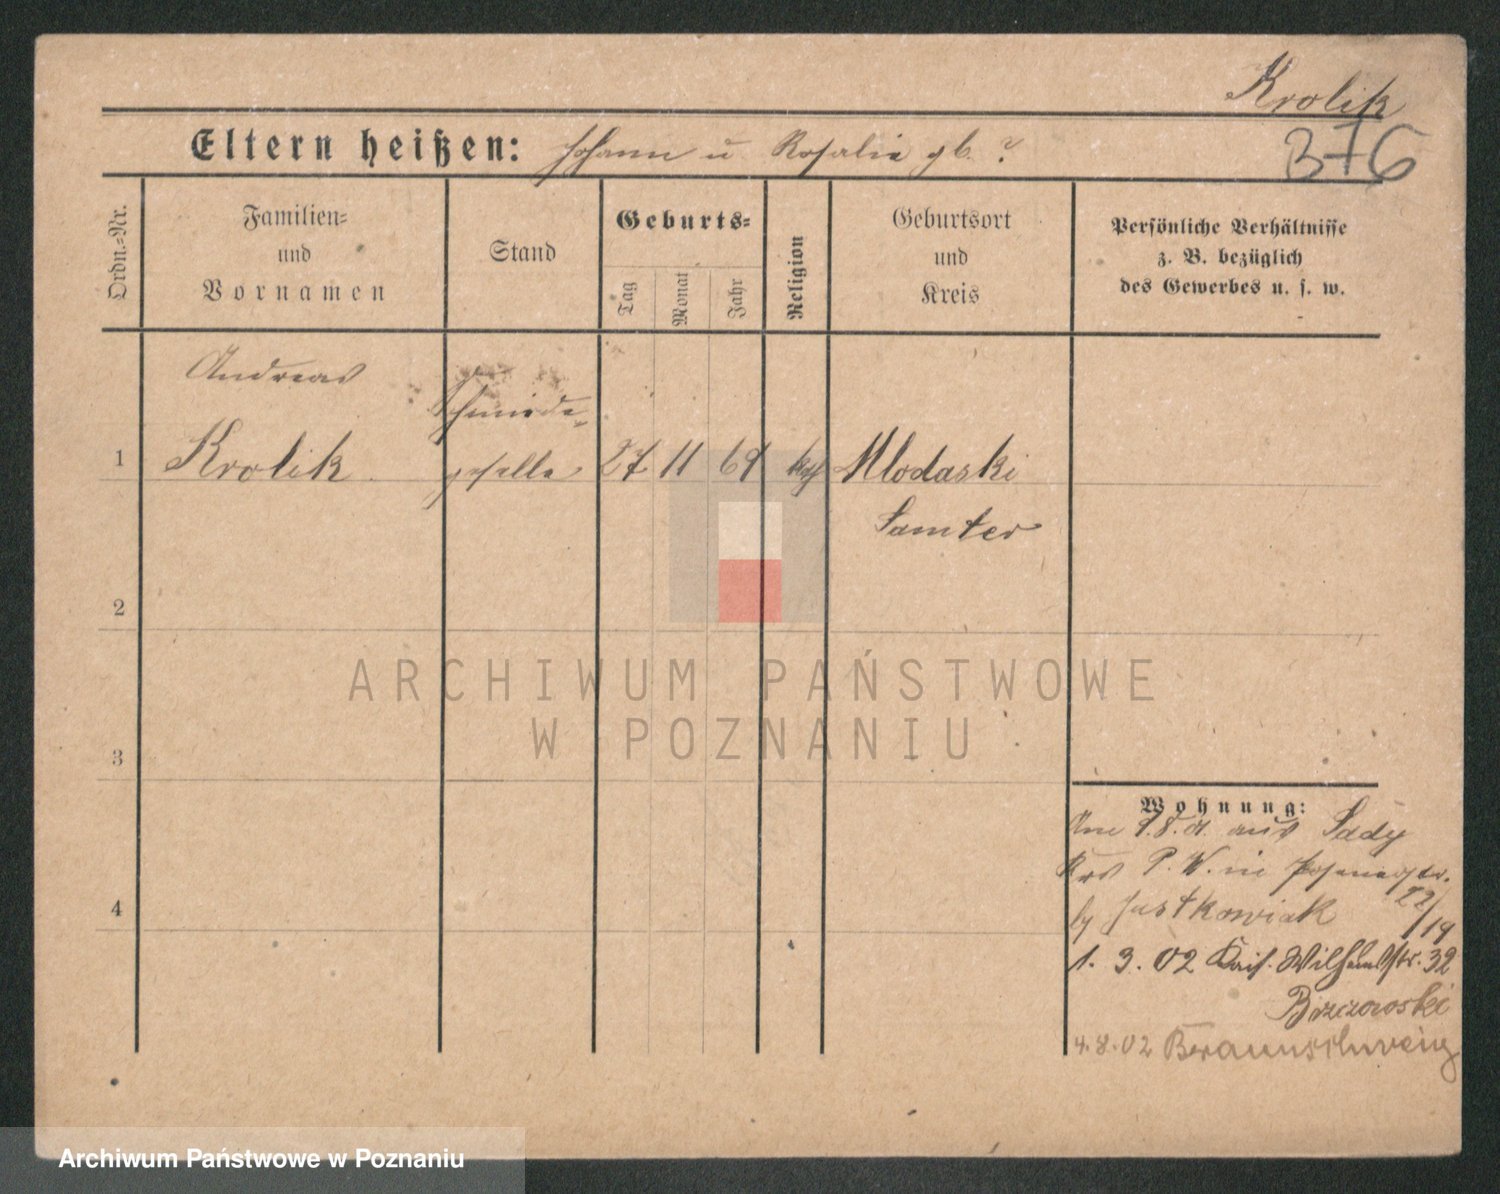 Krolik
376
Eltern heißen: Johann u Rosalie gb. ?
Ordn.=Nr.
Familien=
und
Vornamen
Stand
Geburts=
Tag
Monat
Jahr
Religion
Geburtsort
und
Kreis
Persönliche Verhältnisse
z. B. bezüglich
des Gewerbes u. s. w.
Andreas
Schmiede-
1 Krolik geselle 27 11 69 kath Mlodaski
Samter
2
3
4
Wohnung:
Am 9.8.01. aus Sady
Krs P. W. in
by Justkowiak 22/19
1. 3. 02 Kais. Wilhelmstr. 32
4.8.02 Braunschweig
ARCHIWUM PAŃSTWOWE
W POZNANIU
Archiwum Państwowe w Poznaniu